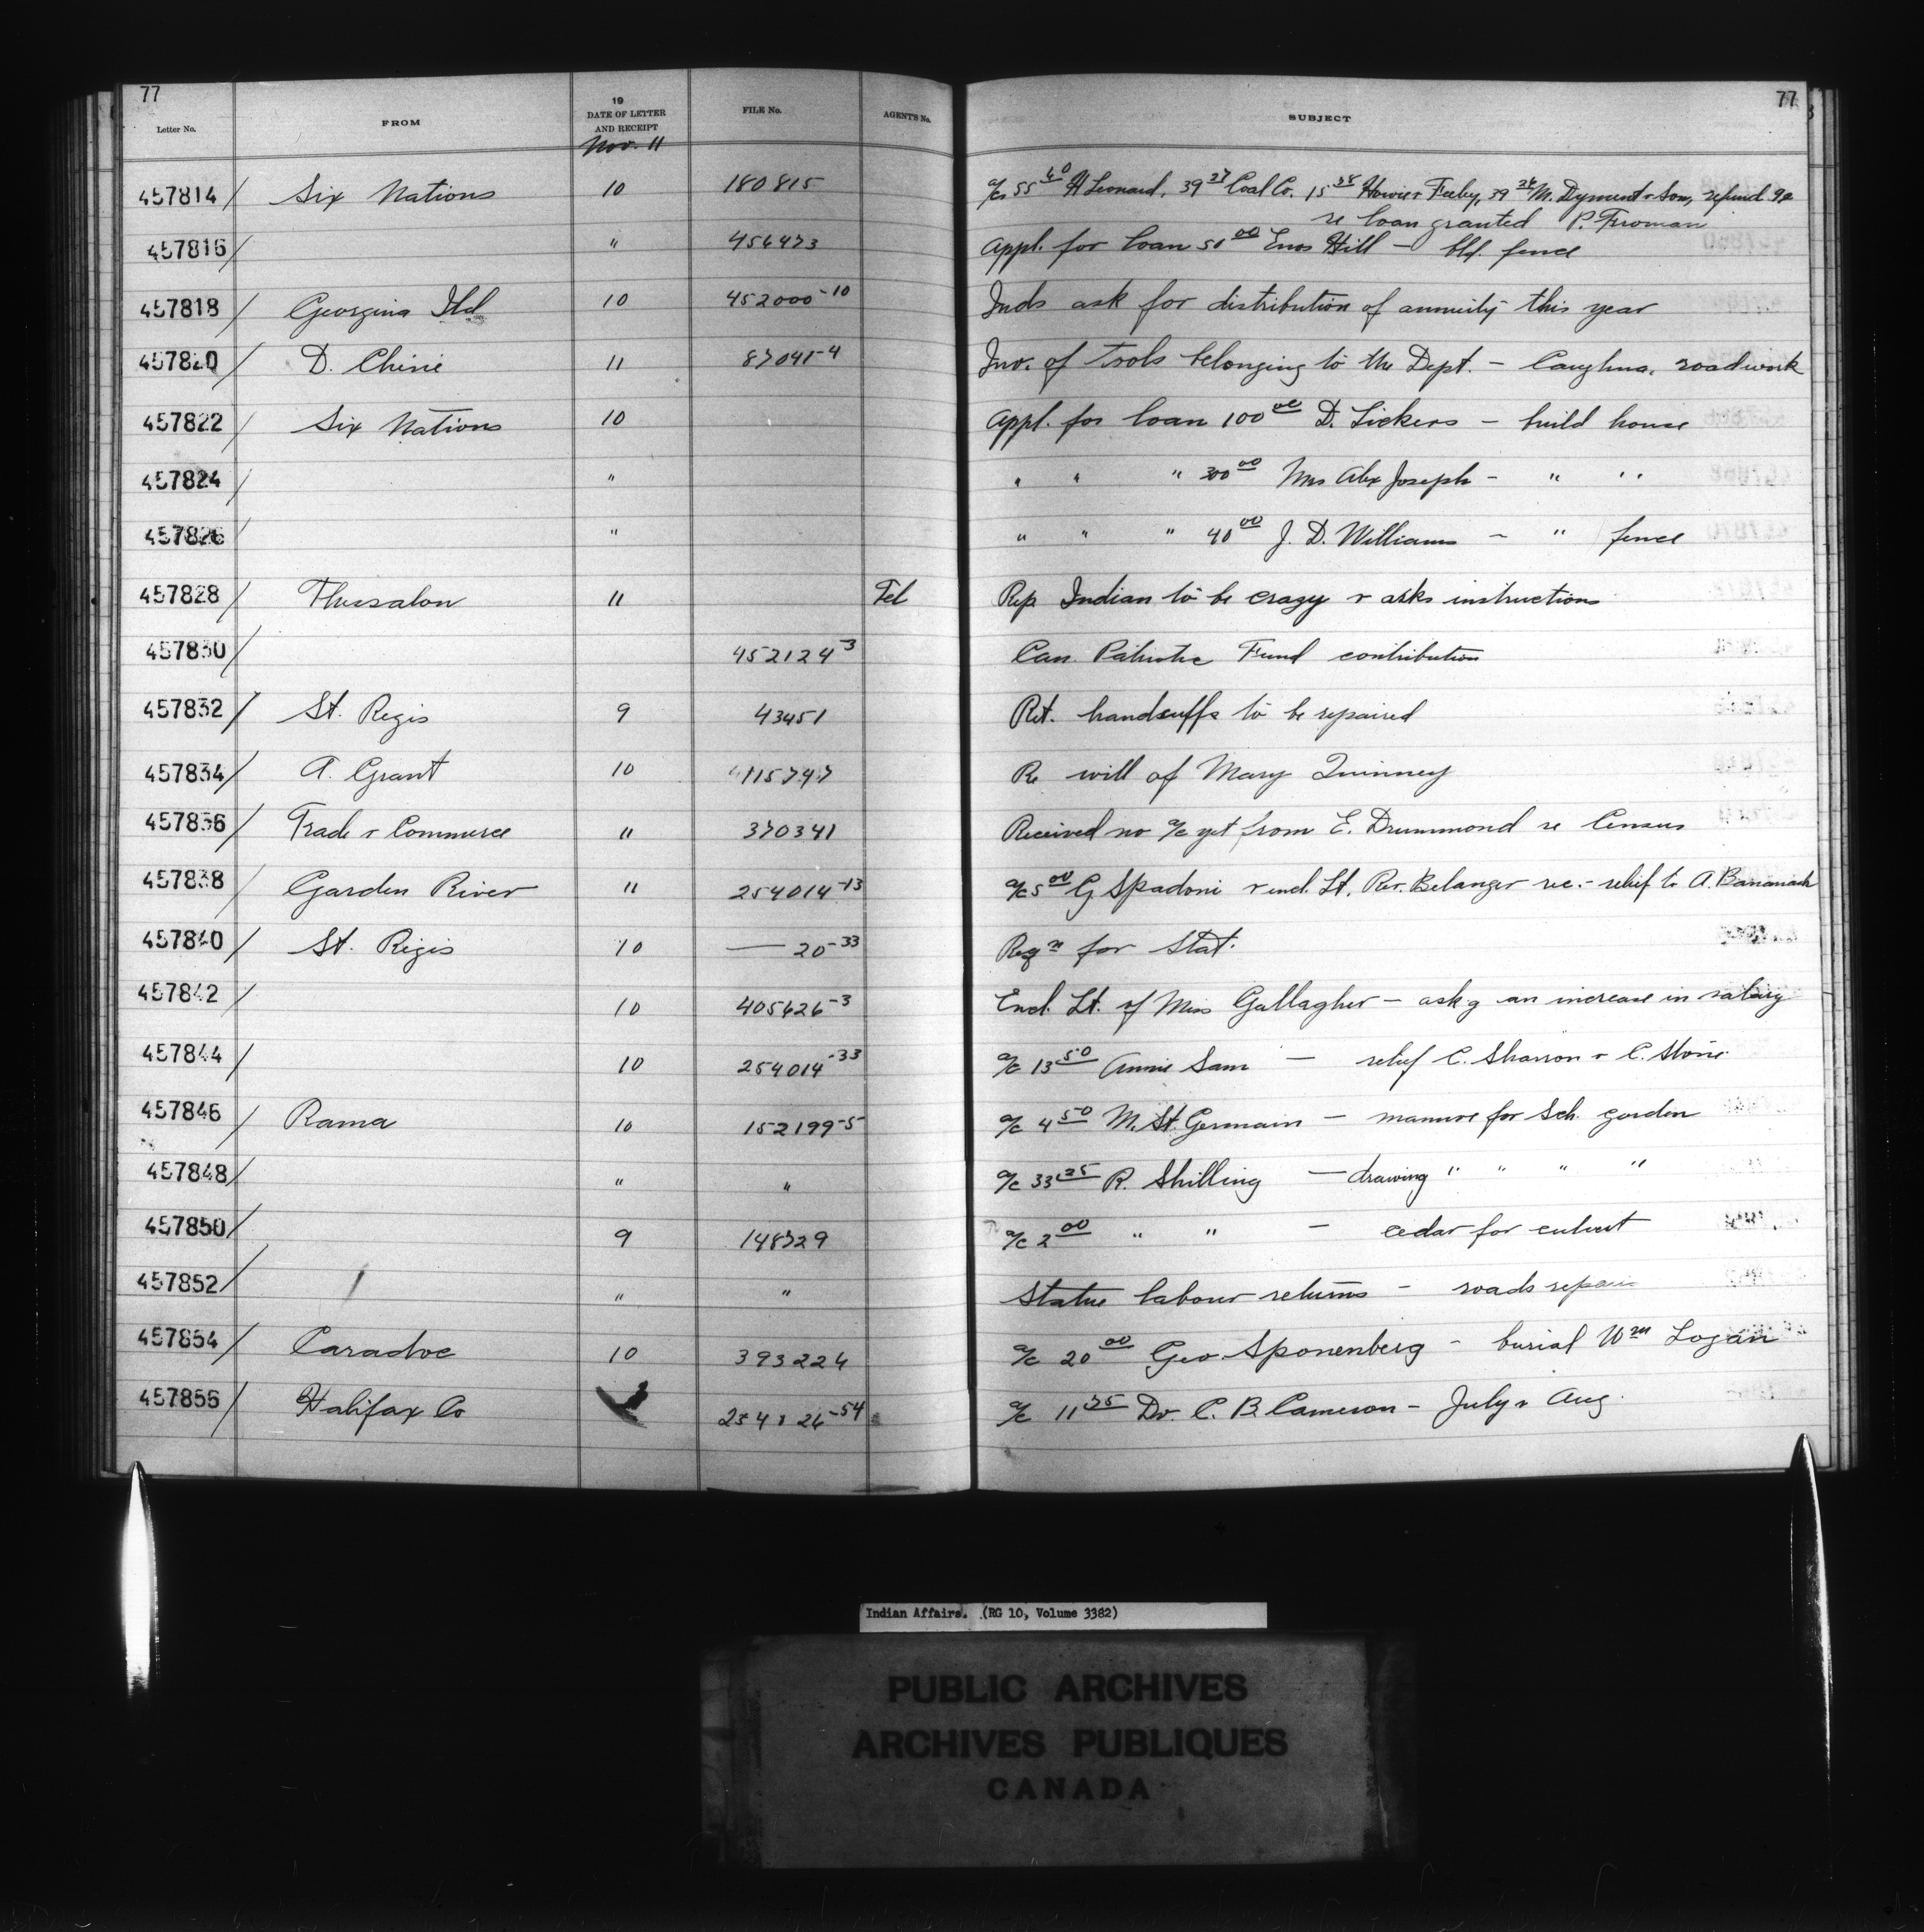 77 77
Letter No. FROM 19 DATE OF LETTER AND RECEIPT FILE No. AGENT'S No. SUBJECT
Nov. 11
457814 / Six Nations 10 180815 a/cs 55 40 H Leonard, 39 27 Coal Co. 15 Howie & Feeley, 39 24 M. Dyment & Son, refund
re loan granted P. Froman
457816 " 456473 Appl. for loan 50 00 Enos Hill — bld. fence
457818 / Georgina Isld 10 452000-10 Inds ask for distribution of annuity this year
457820 / D. Chéné 11 87041-4 Inv. of tools belonging to the Dept. — Caughna. roadwork
457822 / Six Nations 10 Appl. for loan 100 00 D. Lickers — build house
457824 / " " " " 300 00 Mrs Alex Joseph - " "
457826 " " " " 40 00 J. D. Williams - " fence
457828 / Thessalon 11 Tel Rep Indian to be crazy & asks instructions
457830 / 452124-3 Can. Patriotic Fund contribution
457832 / St. Regis 9 43451 Ret. handcuffs to be repaired
457834 / A. Grant 10 115747 Re will of Mary Quinney
457836 / Trade & Commerce " 370341 Received no a/c yet from E. Drummond re Census
457838 / Garden River " 254014-13 a/c 5 00 G. Spadoni & encl. Lt. Rev. Belanger re. - relief to A. Bananash
457840 / St. Regis 10 — 20-33 Reqn for Stat.
457842 / 10 405626-3 Encl. Lt. of Miss Gallagher — askg an increase in salary
457844 / 10 254014-33 a/c 13 50 Annie Sam — relief C. Sharron & C. Stone
457846 / Rama 10 152199-5 a/c 4 50 M. St. Germain — manure for Sch. garden
457848 / " " a/c 33 25 R. Shilling — drawing " " " "
457850 / 9 148729 a/c 2 00 " " — cedar for culvert
457852 / " " Statue labour returns - roads repair
457854 / Caradoc 10 393224 a/c 20 00 Geo. Sponenberg - burial Wm Logan
457856 / Halifax Co 254126-54 a/c 11 75 Dr. C. B. Cameron - July & Aug.
Indian Affairs. (RG 10, Volume 3382)
PUBLIC ARCHIVES
ARCHIVES PUBLIQUES
CANADA